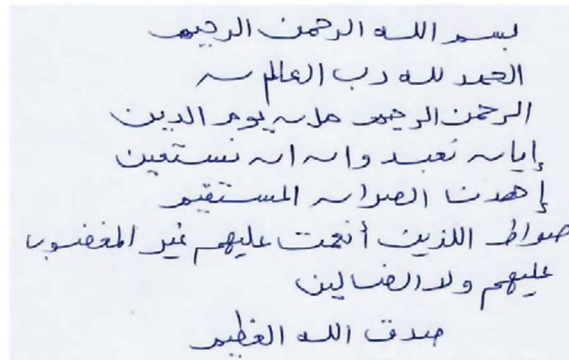 بسم الله الرحمن الرحيم
الحمد لله رب العالم ـه
الرحمن الرحيم ملـه يوم الدين
إياـه نعبد واـه اـه نستعين
إهدنا الصراـه المستقيم
صواط اللذين أنعمت عليهم غير المغضوب
عليهم ولا الضالين
صدق الله العظيم